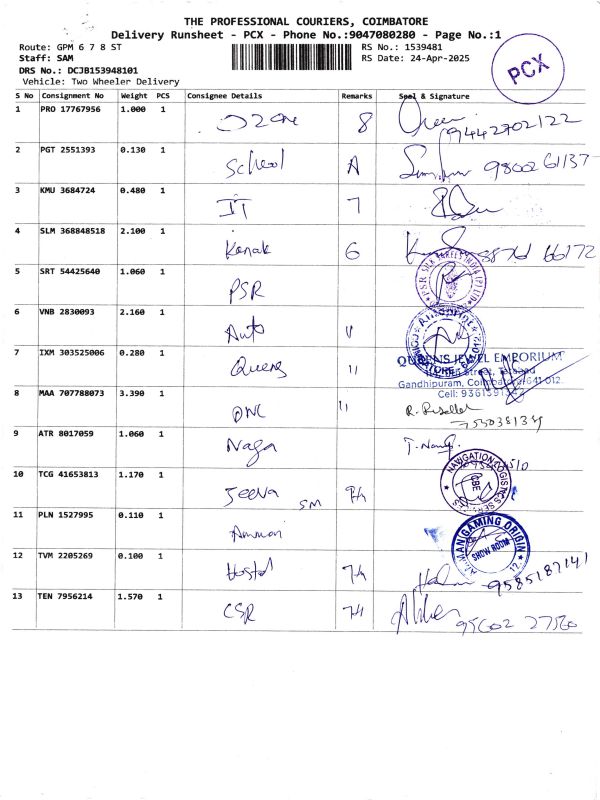 THE PROFESSIONAL COURIERS, COIMBATORE
Delivery Runsheet - PCX - Phone No.:9047080280 - Page No.:1
Route: GPM 6 7 8 ST
RS No.: 1539481
Staff: SAM
RS Date: 24-Apr-2025
DRS No.: DCJB153948101
Vehicle: Two Wheeler Delivery
PCX
S No Consignment No Weight PCS Consignee Details Remarks Seal & Signature
1 PRO 17767956 1.000 1 Ozone 8 9442702122
2 PGT 2551393 0.130 1 School A 98002 61137
3 KMU 3684724 0.480 1 IT 7
4 SLM 368848518 2.100 1 Kanak 6 66172
5 SRT 54425640 1.060 1 PSR
6 VNB 2830093 2.160 1 Auto 11
7 IXM 303525006 0.280 1 Queens 11
QUEENS JEWEL EMPORIUM
Gandhipuram, Coimbatore-641 012.
Cell: 936139134
8 MAA 707788073 3.390 1 DNC 11
9 ATR 8017059 1.060 1 Naga
10 TCG 41653813 1.170 1 Jeeva SM 74
NAVIGATION LOGISTICS
CBE
11 PLN 1527995 0.110 1 Amman
MANIGAMING ORIGIN
SHOW ROOM
12 TVM 2205269 0.100 1 Hostel 74 9585187141
13 TEN 7956214 1.570 1 CSR 74 95602 27560